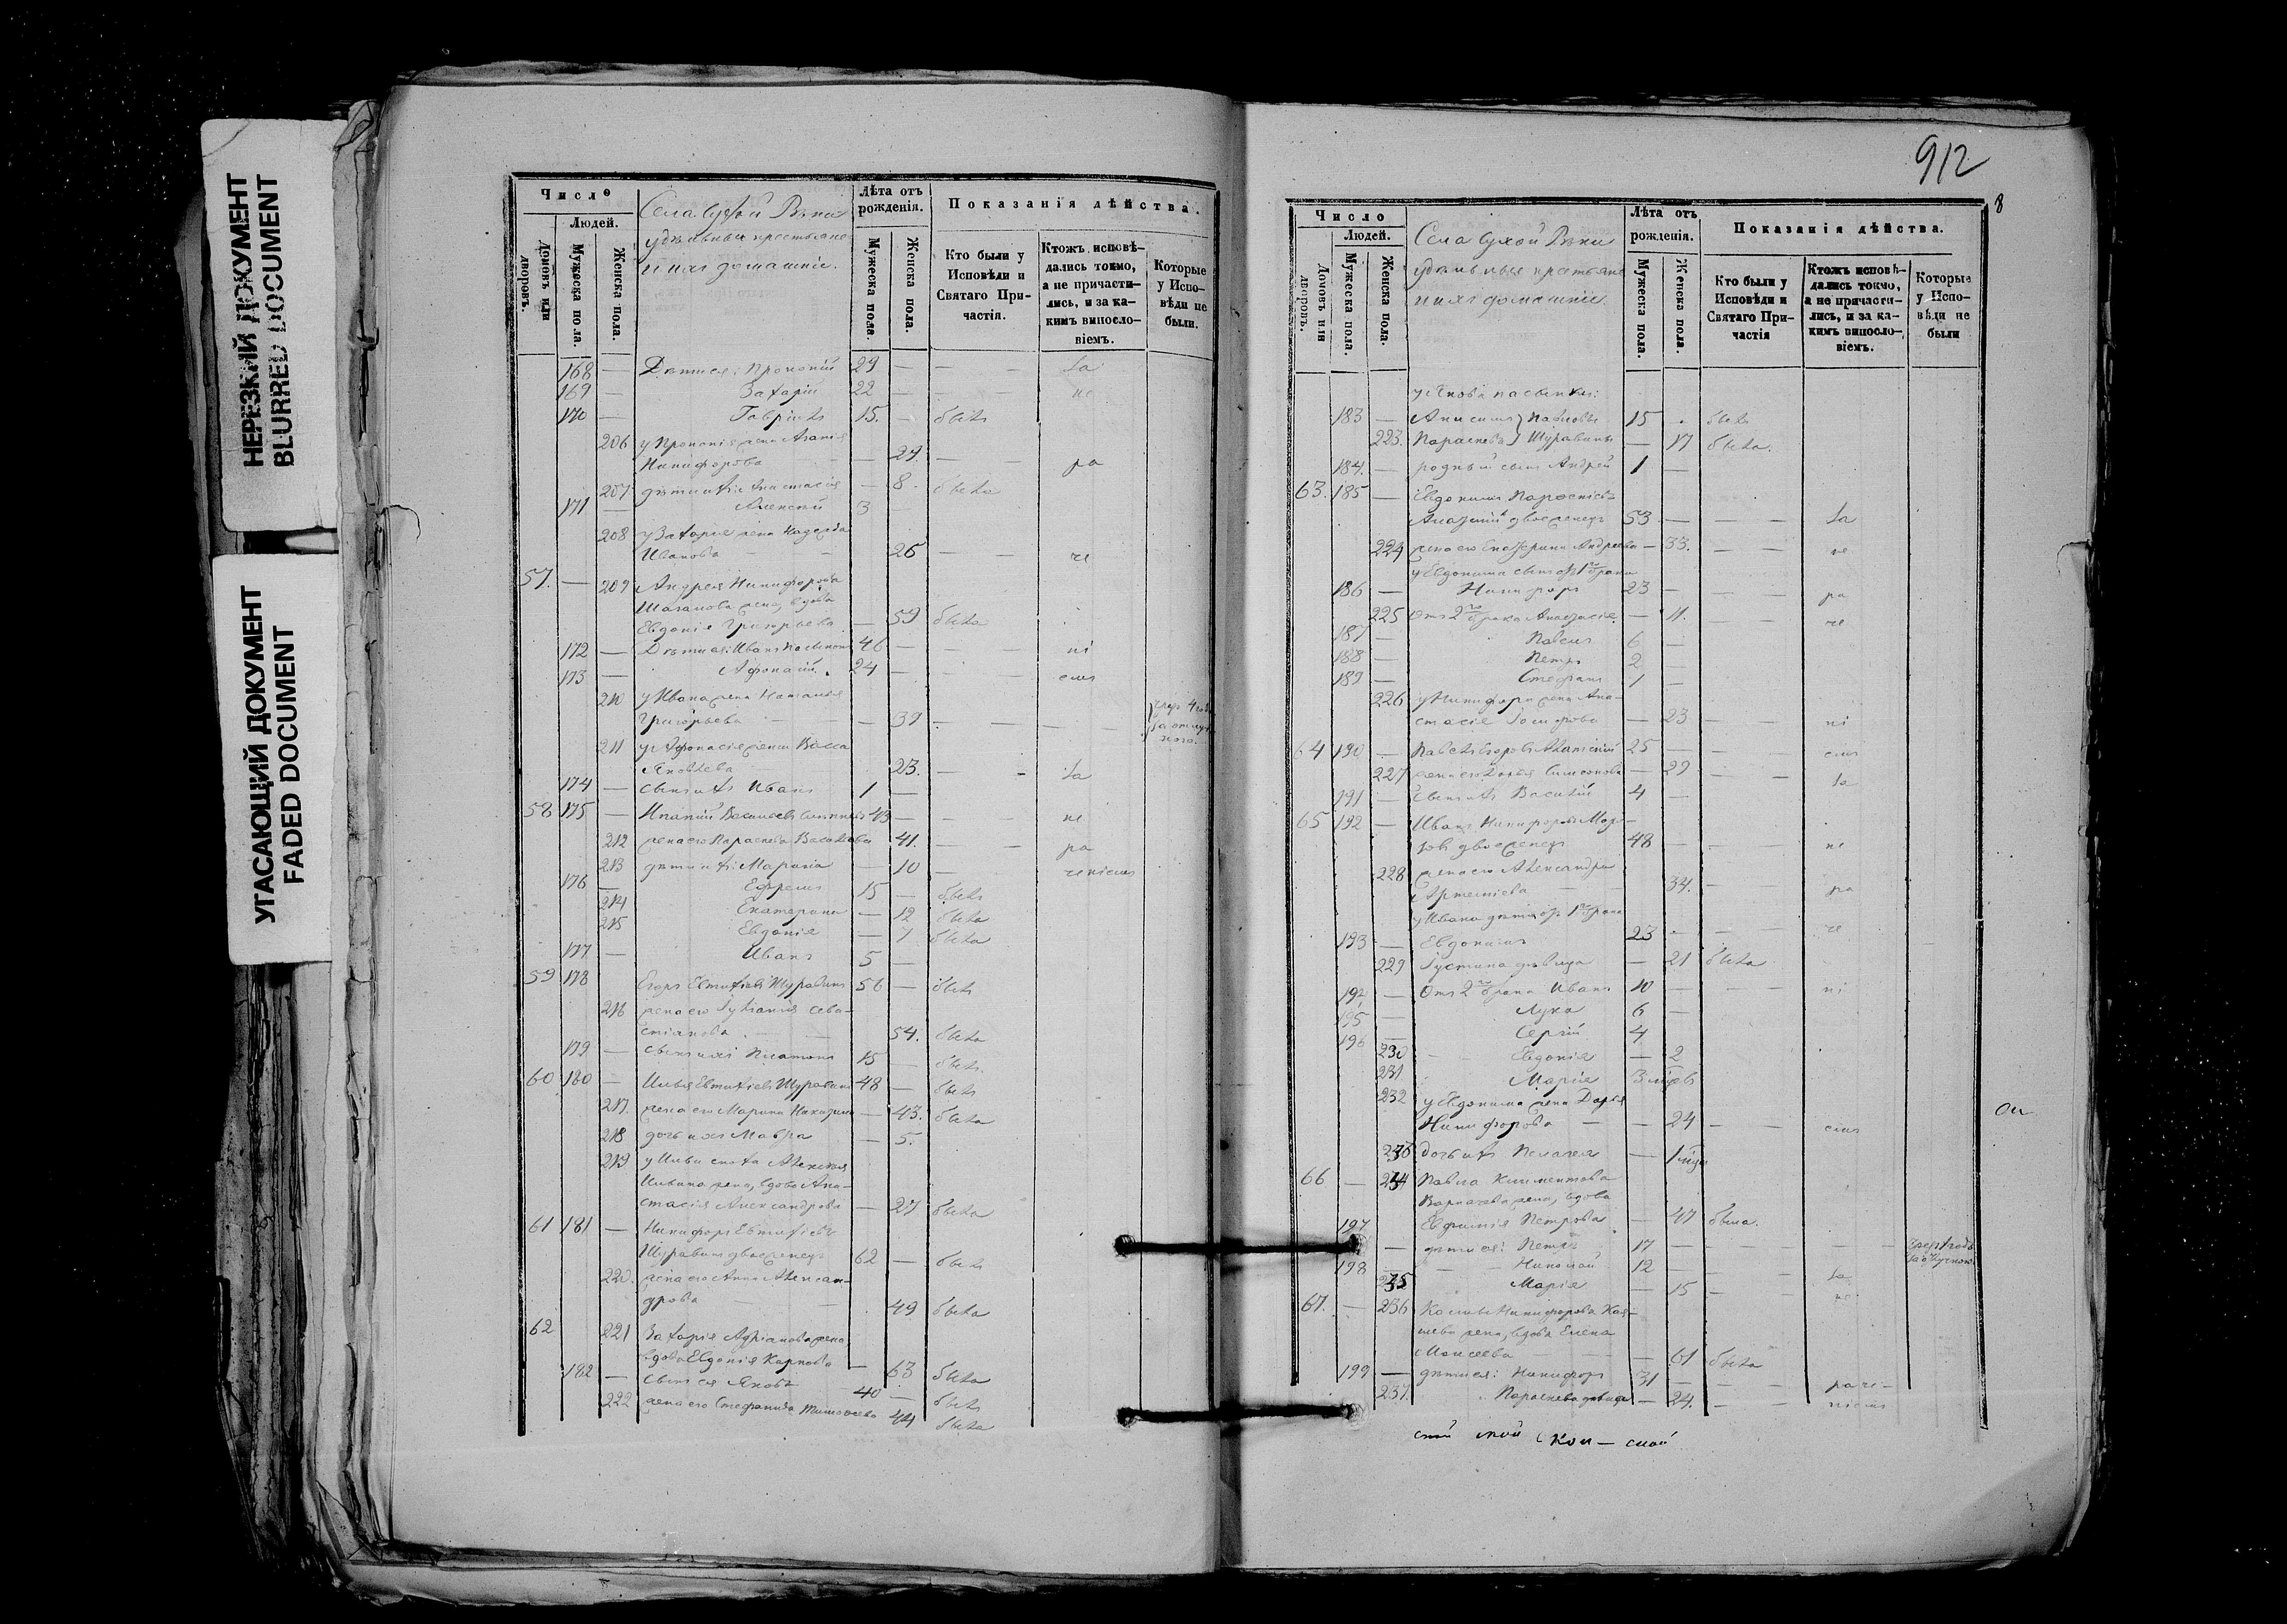 НЕРЕЗКИЙ ДОКУМЕНТ
BLURRED DOCUMENT
УГАСАЮЩИЙ ДОКУМЕНТ
FADED DOCUMENT
Число
Людей.
Домовъ или дворовъ.
Мужеска пола.
Женска пола.
Села Сухой Рѣки
удѣльные крестьяне
и ихъ домашніе.
Лѣта отъ рожденія.
Мужеска пола.
Женска пола.
Показанія дѣйства.
Кто были у Исповѣди и Святаго Причастія.
Ктожъ исповѣдались токмо, а не причастились, и за какимъ винословіемъ.
Которые у Исповѣди не были.
168 — Дѣти ея: Прокопій 29 — — — За
169 — Захарій 22 — — не
170 — Гавріилъ 15. — былъ
206 у Прокопія жена Агапія
Никифорова — 29. — — ра
207 дѣти ихъ Анастасія — 8. была
171 — Алексѣй 3
208 у Захарія жена Надежда
Иванова — — 26 — — че
57. — 209 Андрея Никифорова
жена, вдова
Евдокія Григорьева — 59 была
172 — Дѣти ея: Иванъ 46 — — — ні
173 — Афонасій 24 — — — емъ
210 у Ивана жена Наталья
Григорьева — — 39 — — —
211 у Афонасія жена Васса
Яковлева 23. — - За
174 — сынъ ихъ Иванъ 1 —
58 175 — Ипатій Васильевъ 43 — — — не
212 жена его Параскева 41. — — ра
213 дѣти ихъ: Марина — 10 — ченіемъ
176 — Ефремъ 15 — былъ
214 Екатерина — 12 была
215 Евдокія — 7 была
177. — Иванъ 5 —
59 178 Егоръ Евтихіевъ Шуравинъ 56 — былъ
216 жена его Іуліанія Сева-
стіанова 54. была
179 — сынъ ихъ Платонъ 15 — былъ
60 180 — Илья Евтихіевъ Шуравинъ 48 — былъ
217. жена его Марина — 43. была
218 дочь ихъ Мавра — 5.
219 у Ильи сноха Алексѣя
Ильина жена, вдова Ана-
стасія Александрова — 27 была
61 181 — Никифоръ Евтихіевъ
Шуравинъ двоеженецъ 62 — былъ
220. жена его Анна Алексан-
дрова — — 49 была
62 221 Захарія Адріанова жена
вдова Евдокія Карпова — 63 была
182 — сынъ ея Яковъ 40 — былъ
222 жена его Стефанида Тимофеева 44 была
912
8
Число
Людей.
Домовъ или дворовъ.
Мужеска пола.
Женска пола.
Села Сухой Рѣки
удѣльные крестьяне
и ихъ домашніе
Лѣта отъ рожденія.
Мужеска пола.
Женска пола.
Показанія дѣйства.
Кто были у Исповѣди и Святаго Причастія
Ктожъ исповѣдались токмо, а не причастились, и за какимъ винословіемъ.
Которые у Исповѣди не были
у Якова пасынки:
183 — Анисимъ } Павловы 15 . былъ
223. Параскева } Шуравины — 17 была.
184. — родный сынъ Андрей 1 —
63. 185 — Евдокимъ
двоеженецъ 53 — — — За
224 жена его Екатерина Андреева — 33. — — не
у Евдокима сынъ отъ 1го брака
186 — Никифоръ 23 — — — ра
225 Отъ 2го брака Анастасія — 11. — — че
187 — Павелъ 6 —
188 — Петръ 2 —
189 — Стефанъ 1 —
226 у Никифора жена Ана-
стасія — 23 — — ні
64 190 — Павелъ Егоровъ 25 — — емъ
227 жена его Дарья Симеонова — 29 — — За
191 — сынъ ихъ Василій 4 —
65 192 — Иванъ Никифоровъ
двоеженецъ 48 — — не
228 жена его Александра
Артеміева — — 34. — — ра
у Ивана дѣти отъ 1го брака
193 — Евдокимъ 23 — — — че
229 Іустина дѣвица — 21 была
194 — Отъ 2го брака Иванъ 10 — — — ні
195 — Лука 6 —
196 — Сергій 4
230 Евдокія — 2
231 Марія 3 мѣсъ
232 у Евдокима жена Дарья
Никифорова — — 24 — — емъ
дочь ихъ Пелагея — 1
66 — Павла Климентова
жена, вдова
Евфимія Петрова — 47 была.
197 — дѣти ея: Петръ 17 — — — —
198 — Николай 12 — — — За
235 Марія — 15 — — не
67. — 236 Козьмы Никифорова
жена, вдова Елена
Моисеева — — 61 была
199 — дѣти ея: Никифоръ 31 — — — раче-
237. Параскева дѣвица — 24. — — ніемъ